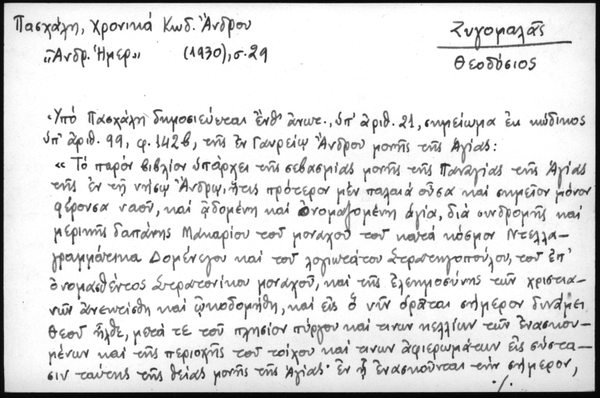 Πασχάλη, Χρονικά Κωδ. Ἄνδρου
Ζυγομαλᾶς
"Ἀνδρ. Ἡμερ" (1930), σ. 29
Θεοδόσιος
Ὑπό Πασχάλη δημοσιεύεται ἔνθ' ἄνωτ., ὑπ' ἀριθ. 21, σημείωμα ἐκ κώδικος
ὑπ' ἀριθ. 99, φ. 142β, τῆς ἐν Γαυρείῳ Ἄνδρου μονῆς τῆς Ἁγίας:
« Τό παρόν βιβλίον ὑπάρχει τῆς σεβασμίας μονῆς τῆς Παναγίας τῆς Ἁγίας
τῆς ἐν τῇ νήσῳ Ἄνδρῳ, ἥτις πρότερον μέν παλαιά οὖσα καί σημεῖον μόνον
φέρουσα ναοῦ, καί ᾀδομένη καί ὀνομαζομένη ἁγία, διά συνδρομῆς καί
μερικῆς δαπάνης Μακαρίου τοῦ μοναχοῦ τοῦ κατά κόσμον Ντελλα-
γραμμάτικα Δομένεγου καί τοῦ λογιωτάτου Στρατηγοπούλου, τοῦ ἐπ'
ὀνομασθέντος Στρατονίκου μοναχοῦ, καί τῆς ἐλεημοσύνης τῶν χριστια-
νῶν ἀνεκτίσθη καί ᾠκοδομήθη, καί εἰς ὅ νῦν ὁρᾶται σήμερον δυνάμει
Θεοῦ ἦλθε, μετά τε τοῦ πλησίον πύργου καί τινων κελλίων τῶν ἐνασκου-
μένων καί τῆς περιοχῆς τοῦ τοίχου καί τινων ἀφιερωμάτων εἰς σύστα-
σιν ταύτης τῆς θείας μονῆς τῆς Ἁγίας· ἐν ᾗ ἐνασκοῦνται τήν σήμερον,
./.